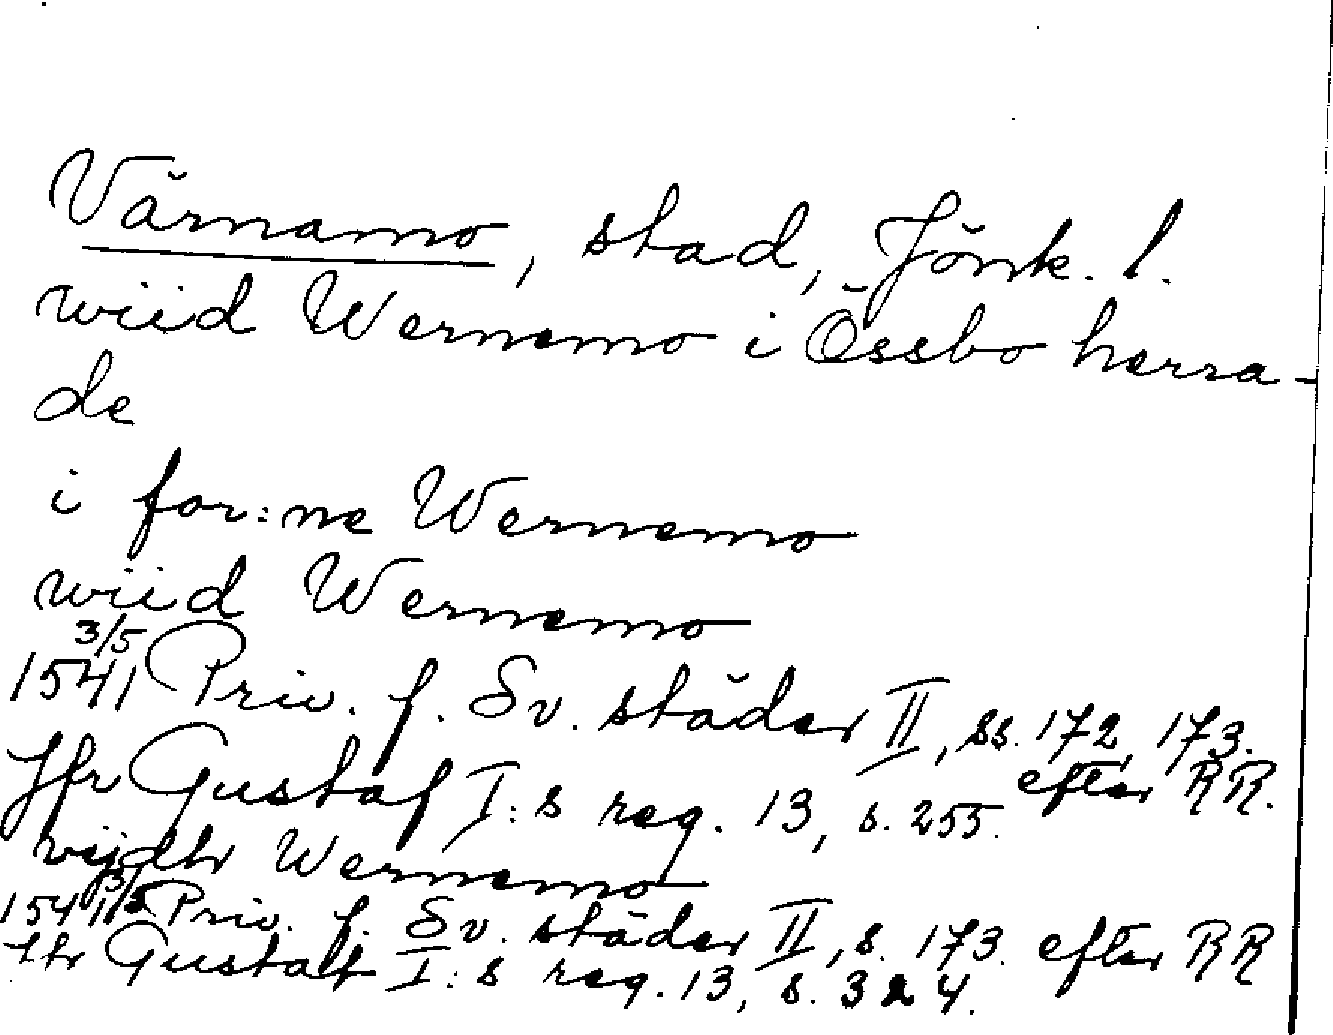 Värnamo, stad, Jönk. l.
wiid Wernemo i Össbo herra-
de
i for:ne Wernemo
wiid Wernemo
1541 3/5 Priv. f. Sv. städer II, ss. 172, 173.
efter RR.
Jfr Gustaf I:s reg. 13, s. 255.
vijdh Wernemo
1541 3/5 Priv. f. Sv. städer II, s. 173. efter RR
Jfr Gustaf I:s reg. 13, s. 324.